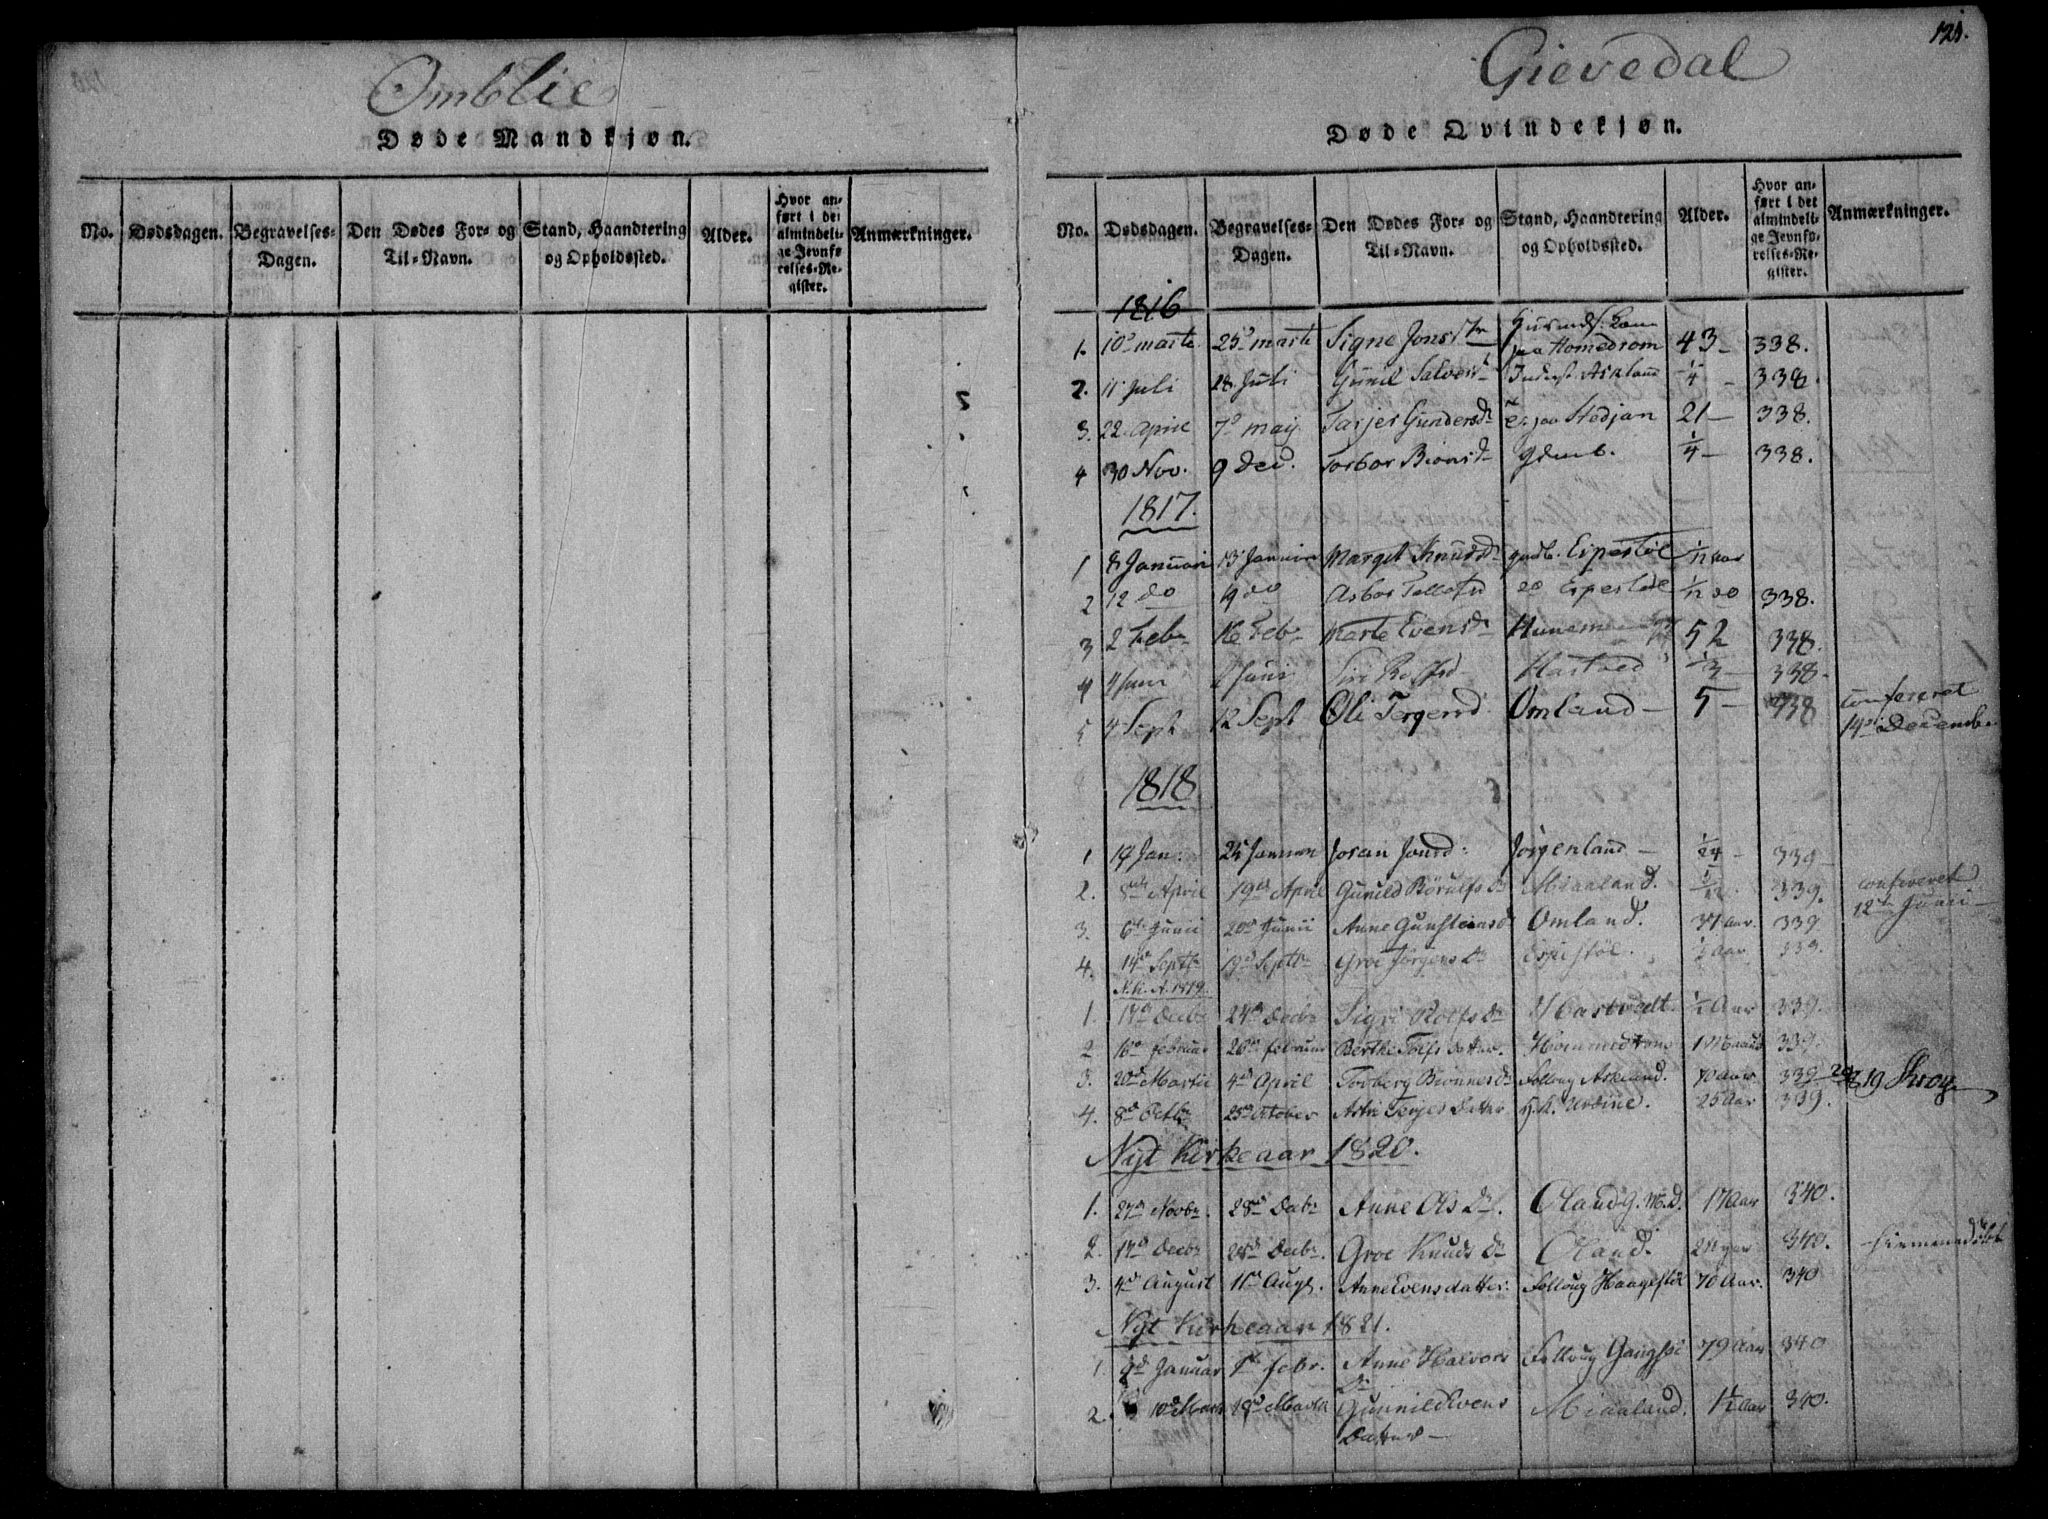 Omblie
Døde Mandkjøn.
No. Dødsdagen. Begravelses-Dagen. Den Dødes For- og Til-Navn. Stand, Haandtering og Opholdssted. Alder. Hvor anført i det almindelige Jevnførelses-Register. Anmærkninger.
121.
Gievedal
Døde Qvindekjøn.
No. Dødsdagen. Begravelses-Dagen. Den Dødes For- og Til-Navn. Stand, Haandtering og Opholdssted. Alder. Hvor anført i det almindelige Jevnførelses-Register. Anmærkninger.
1816
1. 10 marts 25 marts Signe Jonsdr Huusmds. Kone paa Homedrom 43 338.
2. 11 Juli 18 Juli Gunil Salves Askland 1/4 338.
3. 22 April 7 maij Tarjer Gundersdr Stedjan 21 338.
4 30 Nov. 9 Dec. Torbor Biønsdr gdmb. 1/4 338.
1817.
1 8 Januari 13 Januar Margit Knudsdr gmdb. Espestøl 1/12 aar
2 12 do 19 do Asbor Tellefsd do Espestøl 1/12 do 338.
3 2 Feb 16 Feb Marte Evensdr 52 338.
4 4 Juni Juni Siri Rolfsd Hastved 1/3 338.
5 4 Sept 12 Sept Oli Tergersd Omland 5 338 confereret 14 Decemb
1818
1 19 Jan. 25 Januar Joran Jonsd: Jørgenland 1/24 339
2. 5 April 19 April Gunild Børulfs Dr Miaaland. 339. confereret 12 Junii
3. 6 Junii 20 Junii Anne Gunsteinsd Omland. 37 aar. 339
4. 14 Septbr 19 Septbr Groe Jørgens Dr Espestøl. 1/2 Aar 339.
N.K.A. 1819.
1. 17 Decbr 24 Decbr Sigri Rolfs Dr Hastvedt. 1/2 Aar 339.
2 16 februar 26 februar Berthe Toefs datter. Hommedrom 1 Maaned 339.
3. 20 Martii 4 April Torberg Biønnes Dr Folloug Askland. 70 aar 339
4. 8 Octbr 25 October Astri Terjes Datter H.K. Urdine. 26 Aar 339.
Nyt Kirkeaar 1820.
1. 27 Novbr. 28 Decbr Anne Ols Dr. Oland G.M.D. 17 Aar 340.
2. 17 Decbr 28 Decbr. Groe Knuds Dr Oland. 340.
3. 4 August 11 Augs. Anne Evensdatter. Folloug Haugestøl 70 Aar. 340
Nyt Kirkeaar 1821.
1. 9 Januar 1 febr. Anne Halvors Dr Folloug 79 Aar 340
2. 10 Marts 18 Martii Gunnild Evens Datter Miaaland. 1/2 Aar 340.